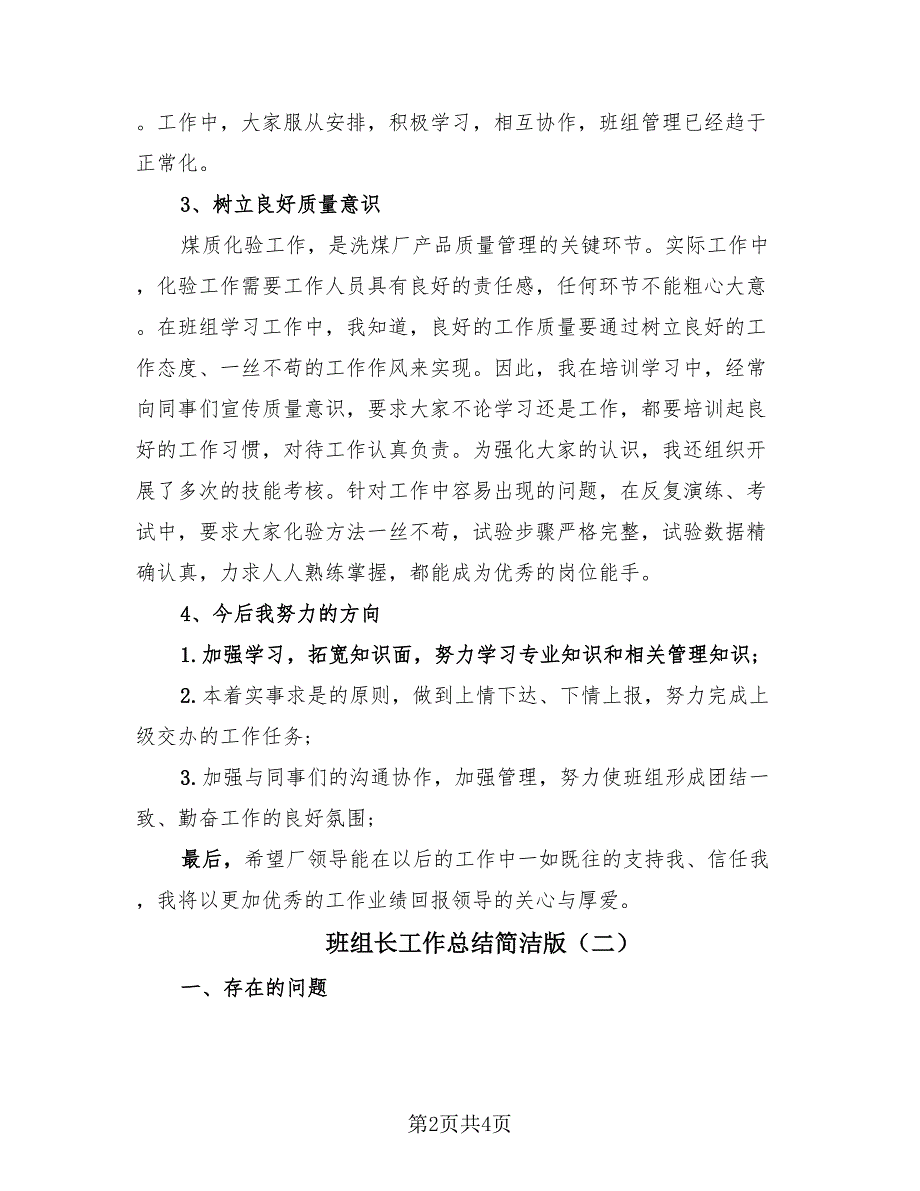 。工作中，大家服从安排，积极学习，相互协作，班组管理已经趋于
正常化。
3、树立良好质量意识
煤质化验工作，是洗煤厂产品质量管理的关键环节。实际工作中
，化验工作需要工作人员具有良好的责任感，任何环节不能粗心大意
。在班组学习工作中，我知道，良好的工作质量要通过树立良好的工
作态度、一丝不苟的工作作风来实现。因此，我在培训学习中，经常
向同事们宣传质量意识，要求大家不论学习还是工作，都要培训起良
好的工作习惯，对待工作认真负责。为强化大家的认识，我还组织开
展了多次的技能考核。针对工作中容易出现的问题，在反复演练、考
试中，要求大家化验方法一丝不苟，试验步骤严格完整，试验数据精
确认真，力求人人熟练掌握，都能成为优秀的岗位能手。
4、今后我努力的方向
1.加强学习，拓宽知识面，努力学习专业知识和相关管理知识;
2.本着实事求是的原则，做到上情下达、下情上报，努力完成上
级交办的工作任务;
3.加强与同事们的沟通协作，加强管理，努力使班组形成团结一
致、勤奋工作的良好氛围;
最后，希望厂领导能在以后的工作中一如既往的支持我、信任我
，我将以更加优秀的工作业绩回报领导的关心与厚爱。
班组长工作总结简洁版（二）
一、存在的问题
第2页共4页